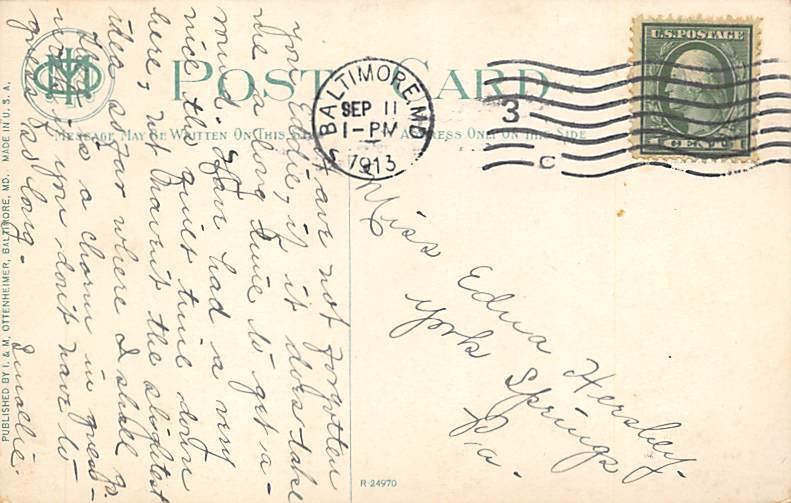 POST CARD
MESSAGE MAY BE WRITTEN ON THIS SIDE
ADDRESS ONLY ON THIS SIDE
BALTIMORE, MD.
SEP 11
1-PM
1913
3
C
U.S. POSTAGE
Have not forgotten
you Eddie, if it does take
me a long time to get a-
round. Have had a very
nice this quiet time down
here, not haven't the slightest
idea as far where I shall go.
There is a charm in guess-
ing, if you don't have to
guess too long.
Smallie.
Miss Edna Hershey.
York Springs
Pa.
PUBLISHED BY I. & M. OTTENHEIMER, BALTIMORE, MD. MADE IN U. S. A.
R-24970